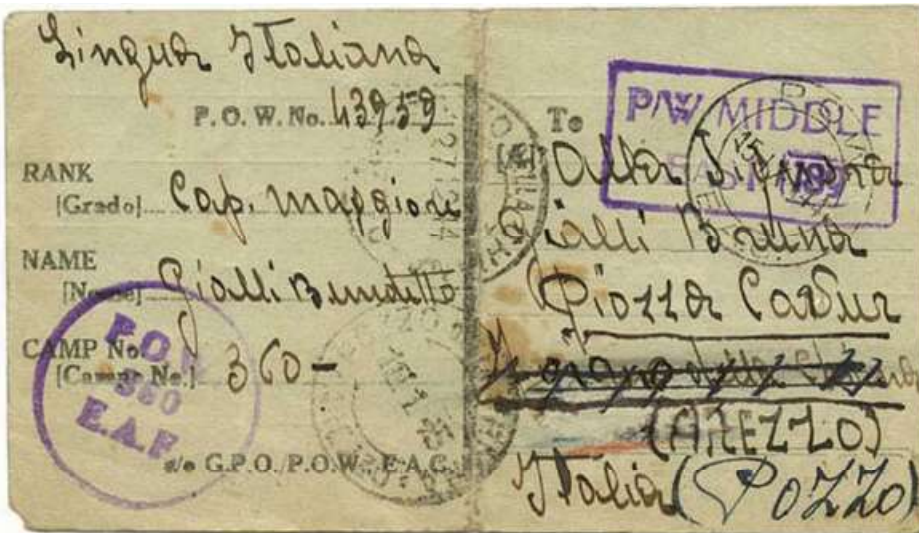 Lingua Italiana
P.O.W. No. 43959
RANK
[Grado] Cap. Maggiore
NAME
[Nome] Gialli Benedetto
CAMP No.
[Campo No.] 360-
c/o G.P.O./P.O.W., E.A.C.
P.O.W.
360
E.A.F
To
P/W MIDDLE
EAST
Alla Signora
Gialli Bruna
Piazza Cavour
(AREZZO)
Italia (POZZO)